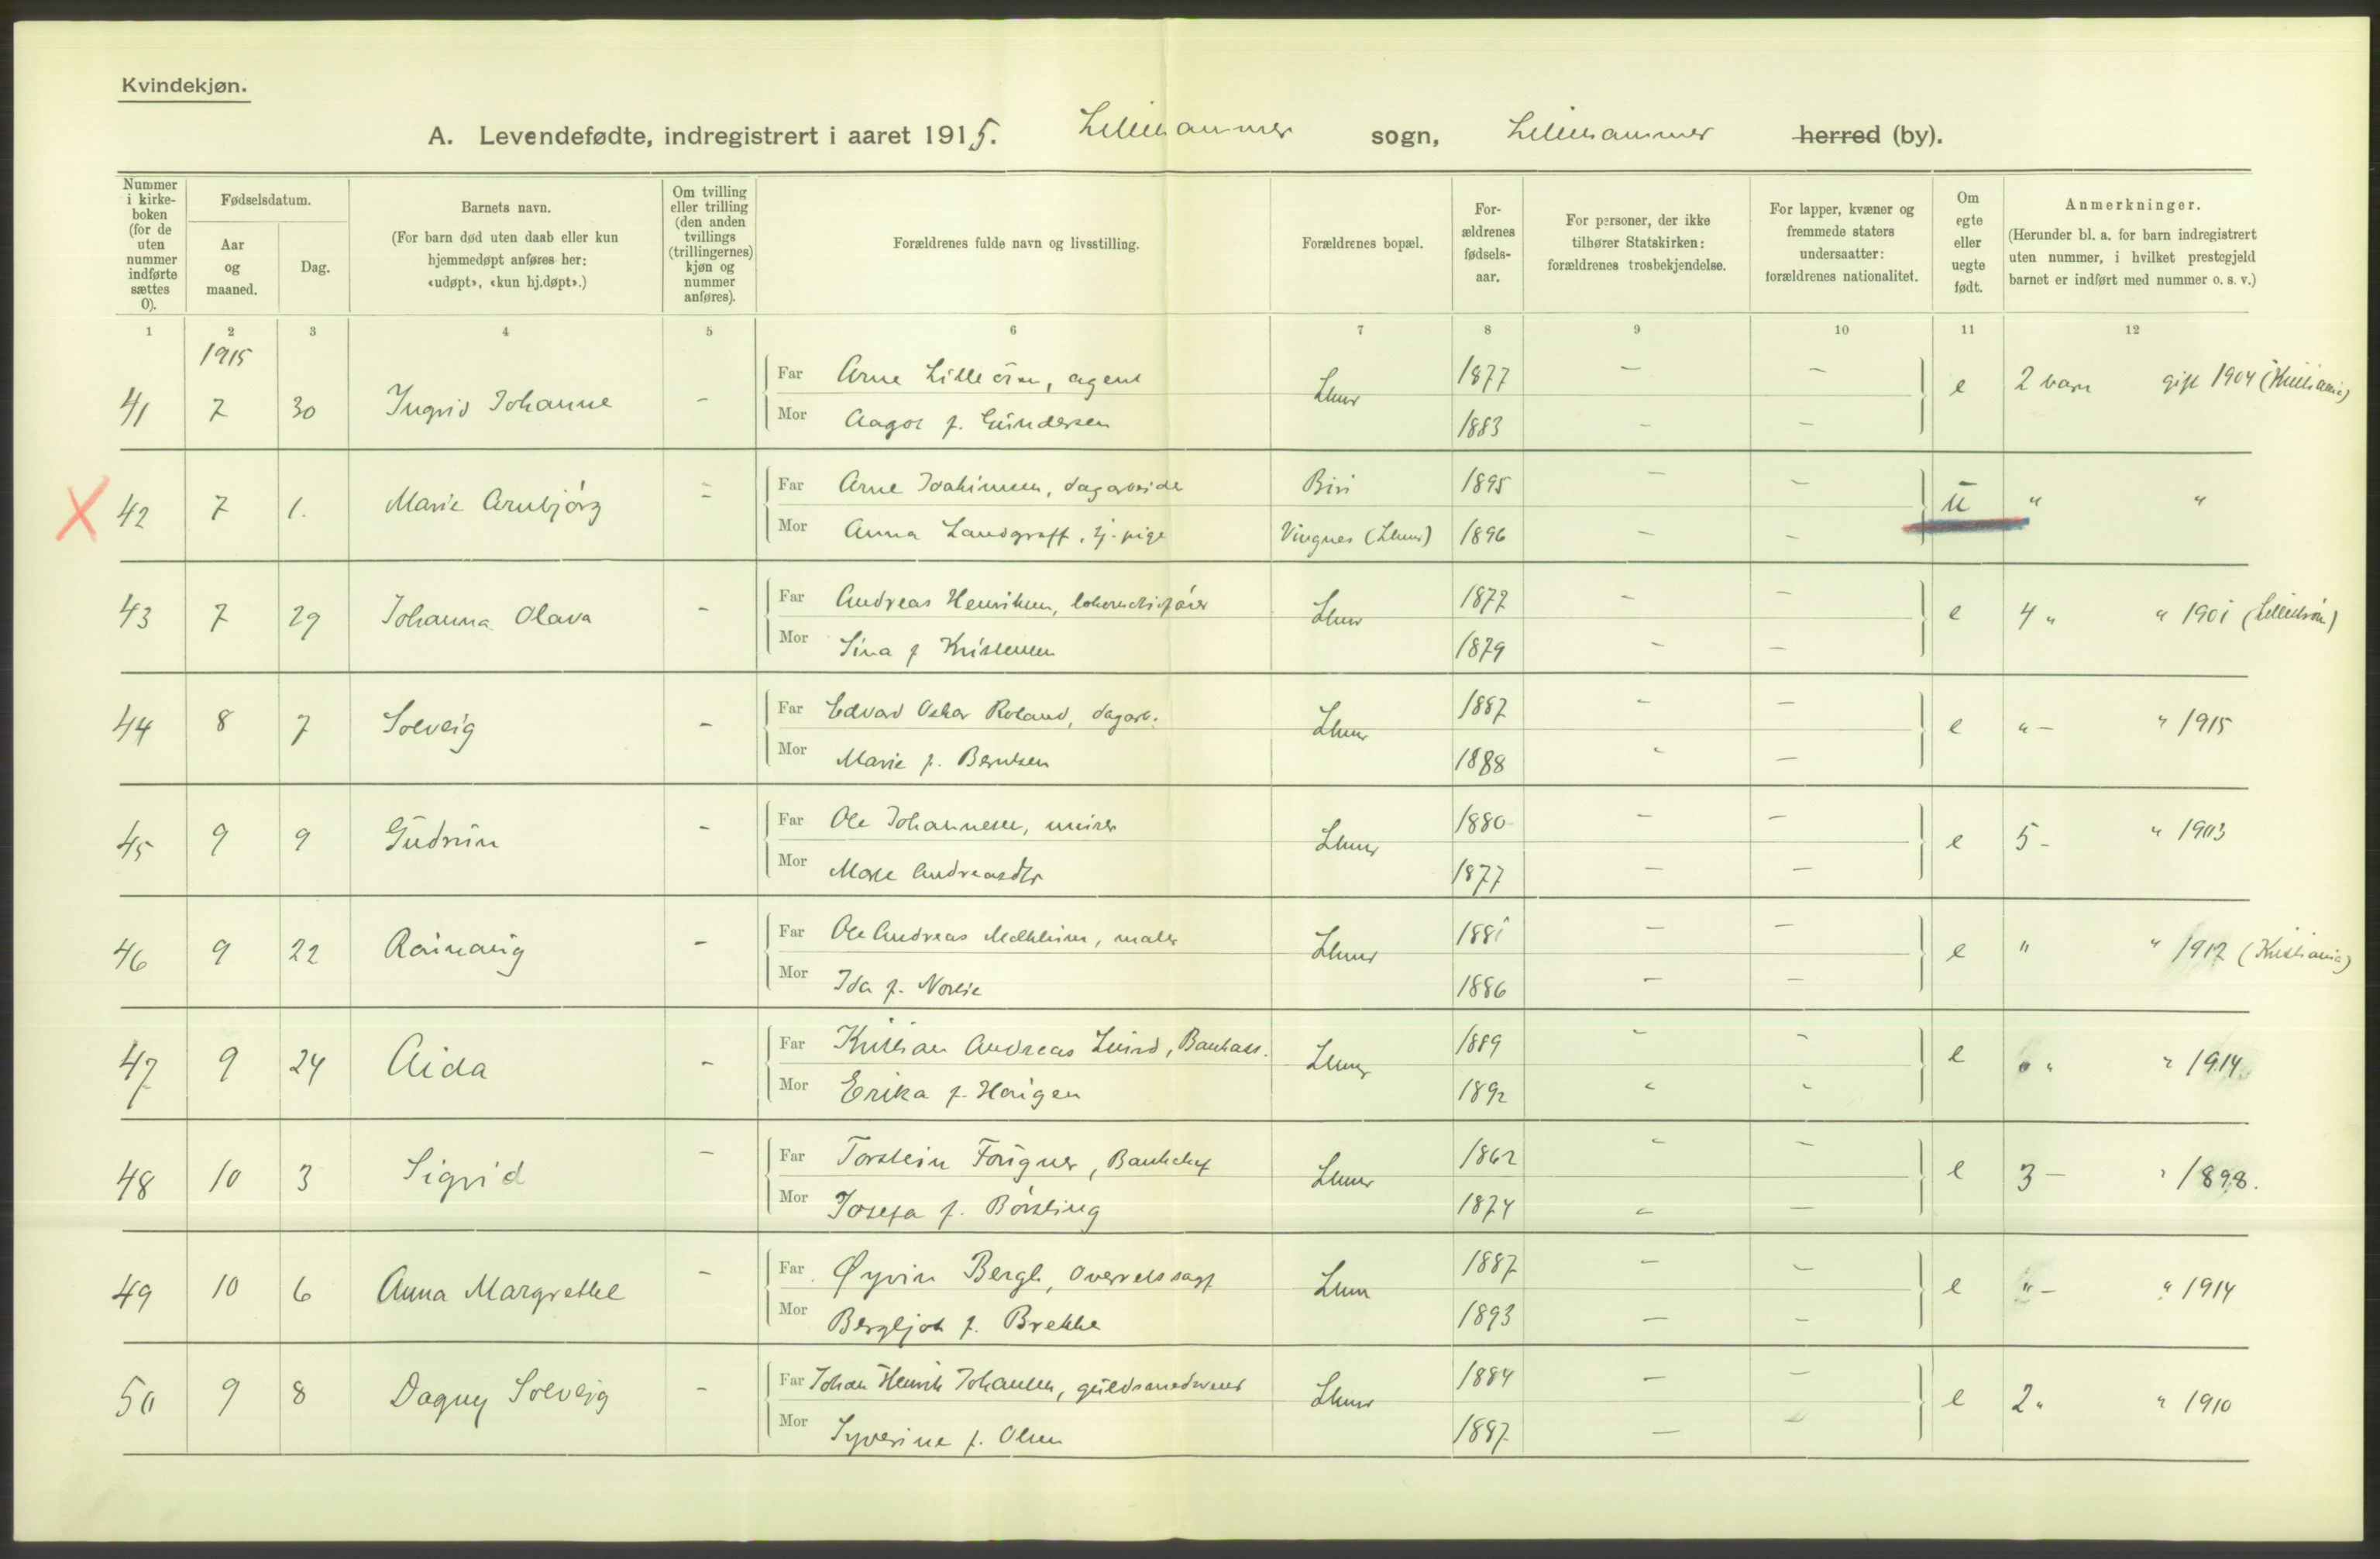 Kvindekjøn.
A. Levendefødte, indregistrert i aaret 1915. Lillehammer sogn, Lillehammer herred (by).
Nummer i kirkeboken (for de uten nummer indførte sættes 0).
Fødselsdatum.
Aar og maaned.
Dag.
Barnets navn.
(For barn død uten daab eller kun hjemmedøpt anføres her: «udøpt», «kun hj.døpt».)
Om tvilling eller trilling (den anden tvillings (trillingernes) kjøn og nummer anføres).
Forældrenes fulde navn og livsstilling.
Forældrenes bopæl.
Forældrenes fødselsaar.
For personer, der ikke tilhører Statskirken: forældrenes trosbekjendelse.
For lapper, kvæner og fremmede staters undersaatter: forældrenes nationalitet.
Om egte eller uegte født.
Anmerkninger.
(Herunder bl. a. for barn indregistrert uten nummer, i hvilket prestegjeld barnet er indført med nummer o. s. v.)
1 2 3 4 5 6 7 8 9 10 11 12
1915
41 7 30 Ingrid Johanne - Far Arne Lilleören, agent Lhmr 1877 - - e 2 barn gift 1904 (Kristiania)
Mor Aagot f. Gundersen 1883 - -
X 42 7 1. Marie Arnbjörg - Far Arne Joakimsen, dagarbeider Biri 1895 - - u " "
Mor Anna Landgraff, tj. pige Vingnes (Lhmr) 1896 - -
43 7 29 Johanna Olava - Far Andreas Henriksen, lokomotivfører Lhmr 1872 - - e 4 " " 1901 (Lillestrøm)
Mor Sina f Kristensen 1879 - -
44 8 7 Solveig - Far Edvard Oskar Roland, dagarb. Lhmr 1887 - - e " - " 1915
Mor Marie f. Berntsen 1888 - -
45 9 9 Gudrun - Far Ole Johannesen, murer Lhmr 1880 - - e 5 - " 1903
Mor Andreasdtr 1877 - -
46 9 22 - Far Ole Andreas, maler Lhmr 1881 - - e " " 1912 (Kristiania)
Mor Ida f. Norlie 1886 - -
47 9 24 Aida - Far Kristian Andreas Lund, Bankass. Lhmr 1889 - - e " " 1914
Mor Erika f. Haugen 1892 - -
48 10 3 Sigrid - Far Torstein Fougner, Bankchef Lhmr 1862 - - e 3 - " 1898.
Mor Josefa f. Børsting 1874 - -
49 10 6 Anna Margrethe - Far Øyvin Bergh, overretssagf Lhmr 1887 - - e " - " 1914
Mor Bergljot f. Brekke 1893 - -
50 9 8 Dagny Solveig - Far Johan Henrik Johansen, guldsmedsvend Lhmr 1884 - - e 2 " " 1910
Mor Syverine f. Olsen 1887 - -